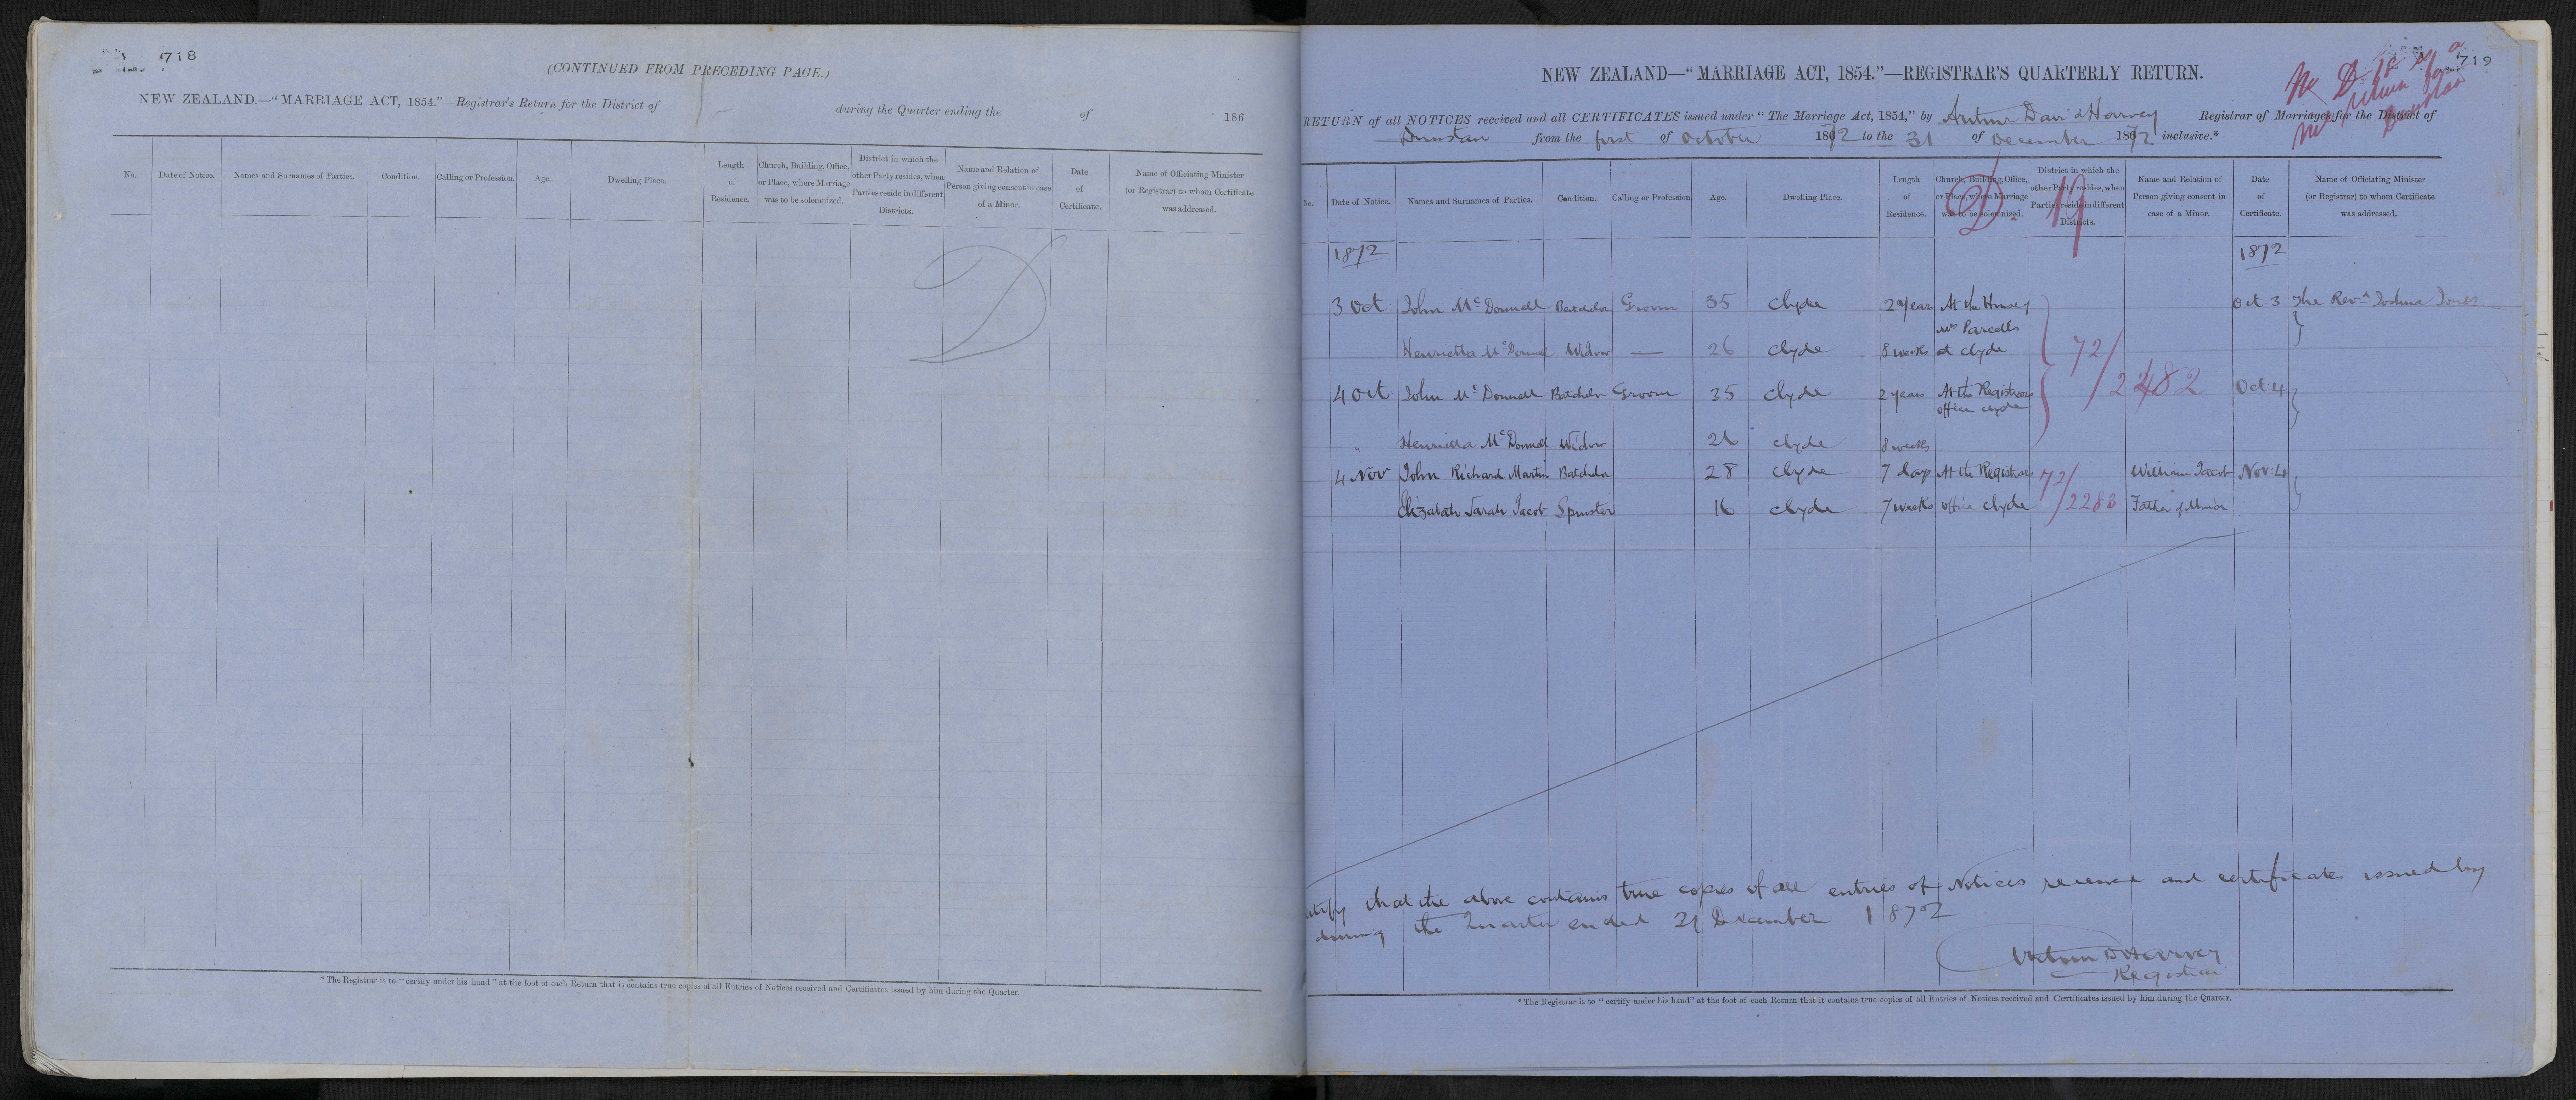 718
(CONTINUED FROM PRECEDING PAGE.)
NEW ZEALAND.—"MARRIAGE ACT, 1854."—Registrar's Return for the District of during the Quarter ending the of 186
No. Date of Notice. Names and Surnames of Parties. Condition. Calling or Profession. Age. Dwelling Place. Length of Residence. Church, Building, Office, or Place, where Marriage was to be solemnized. District in which the other Party resides, when Parties reside in different Districts. Name and Relation of Person giving consent in case of a Minor. Date of Certificate. Name of Officiating Minister (or Registrar) to whom Certificate was addressed.
D
* The Registrar is to "certify under his hand" at the foot of each Return that it contains true copies of all Entries of Notices received and Certificates issued by him during the Quarter.
719
NEW ZEALAND—"MARRIAGE ACT, 1854."—REGISTRAR'S QUARTERLY RETURN.
RETURN of all NOTICES received and all CERTIFICATES issued under "The Marriage Act, 1854," by Arthur David Harvey Registrar of Marriages for the District of
Dunstan from the first of October 1872 to the 31 of December 1872 inclusive.*
No. Date of Notice. Names and Surnames of Parties. Condition. Calling or Profession Age. Dwelling Place. Length of Residence. Church, Building, Office, or Place, where Marriage was to be solemnized. District in which the other Party resides, when Parties reside in different Districts. Name and Relation of Person giving consent in case of a Minor. Date of Certificate. Name of Officiating Minister (or Registrar) to whom Certificate was addressed.
D 19
1872 1872
3 Oct John McDonnell Batchelor Groom 35 Clyde 2 Years At the House of Oct 3 The Revd Joshua Jones
Mrs Parcells
Henrietta McDonnell Widow — 26 Clyde 8 weeks at Clyde 72/
4 Oct John McDonnell Batchelor Groom 35 Clyde 2 years At the Registrars Oct 4
office Clyde
" Henrietta McDonnell Widow 26 Clyde 8 weeks
4 Nov John Richard Martin Batchelor 28 Clyde 7 days At the Registrars 72/ William Jacob Nov: 4
Elizabeth Sarah Jacob Spinster 16 Clyde 7 weeks office Clyde /2283 Father of Minor
that the above contains true copies of all entries of Notices received and certificates issued by
during the Quarter ended 31 December 1872
Arthur D Harvey
Registrar
* The Registrar is to "certify under his hand" at the foot of each Return that it contains true copies of all Entries of Notices received and Certificates issued by him during the Quarter.